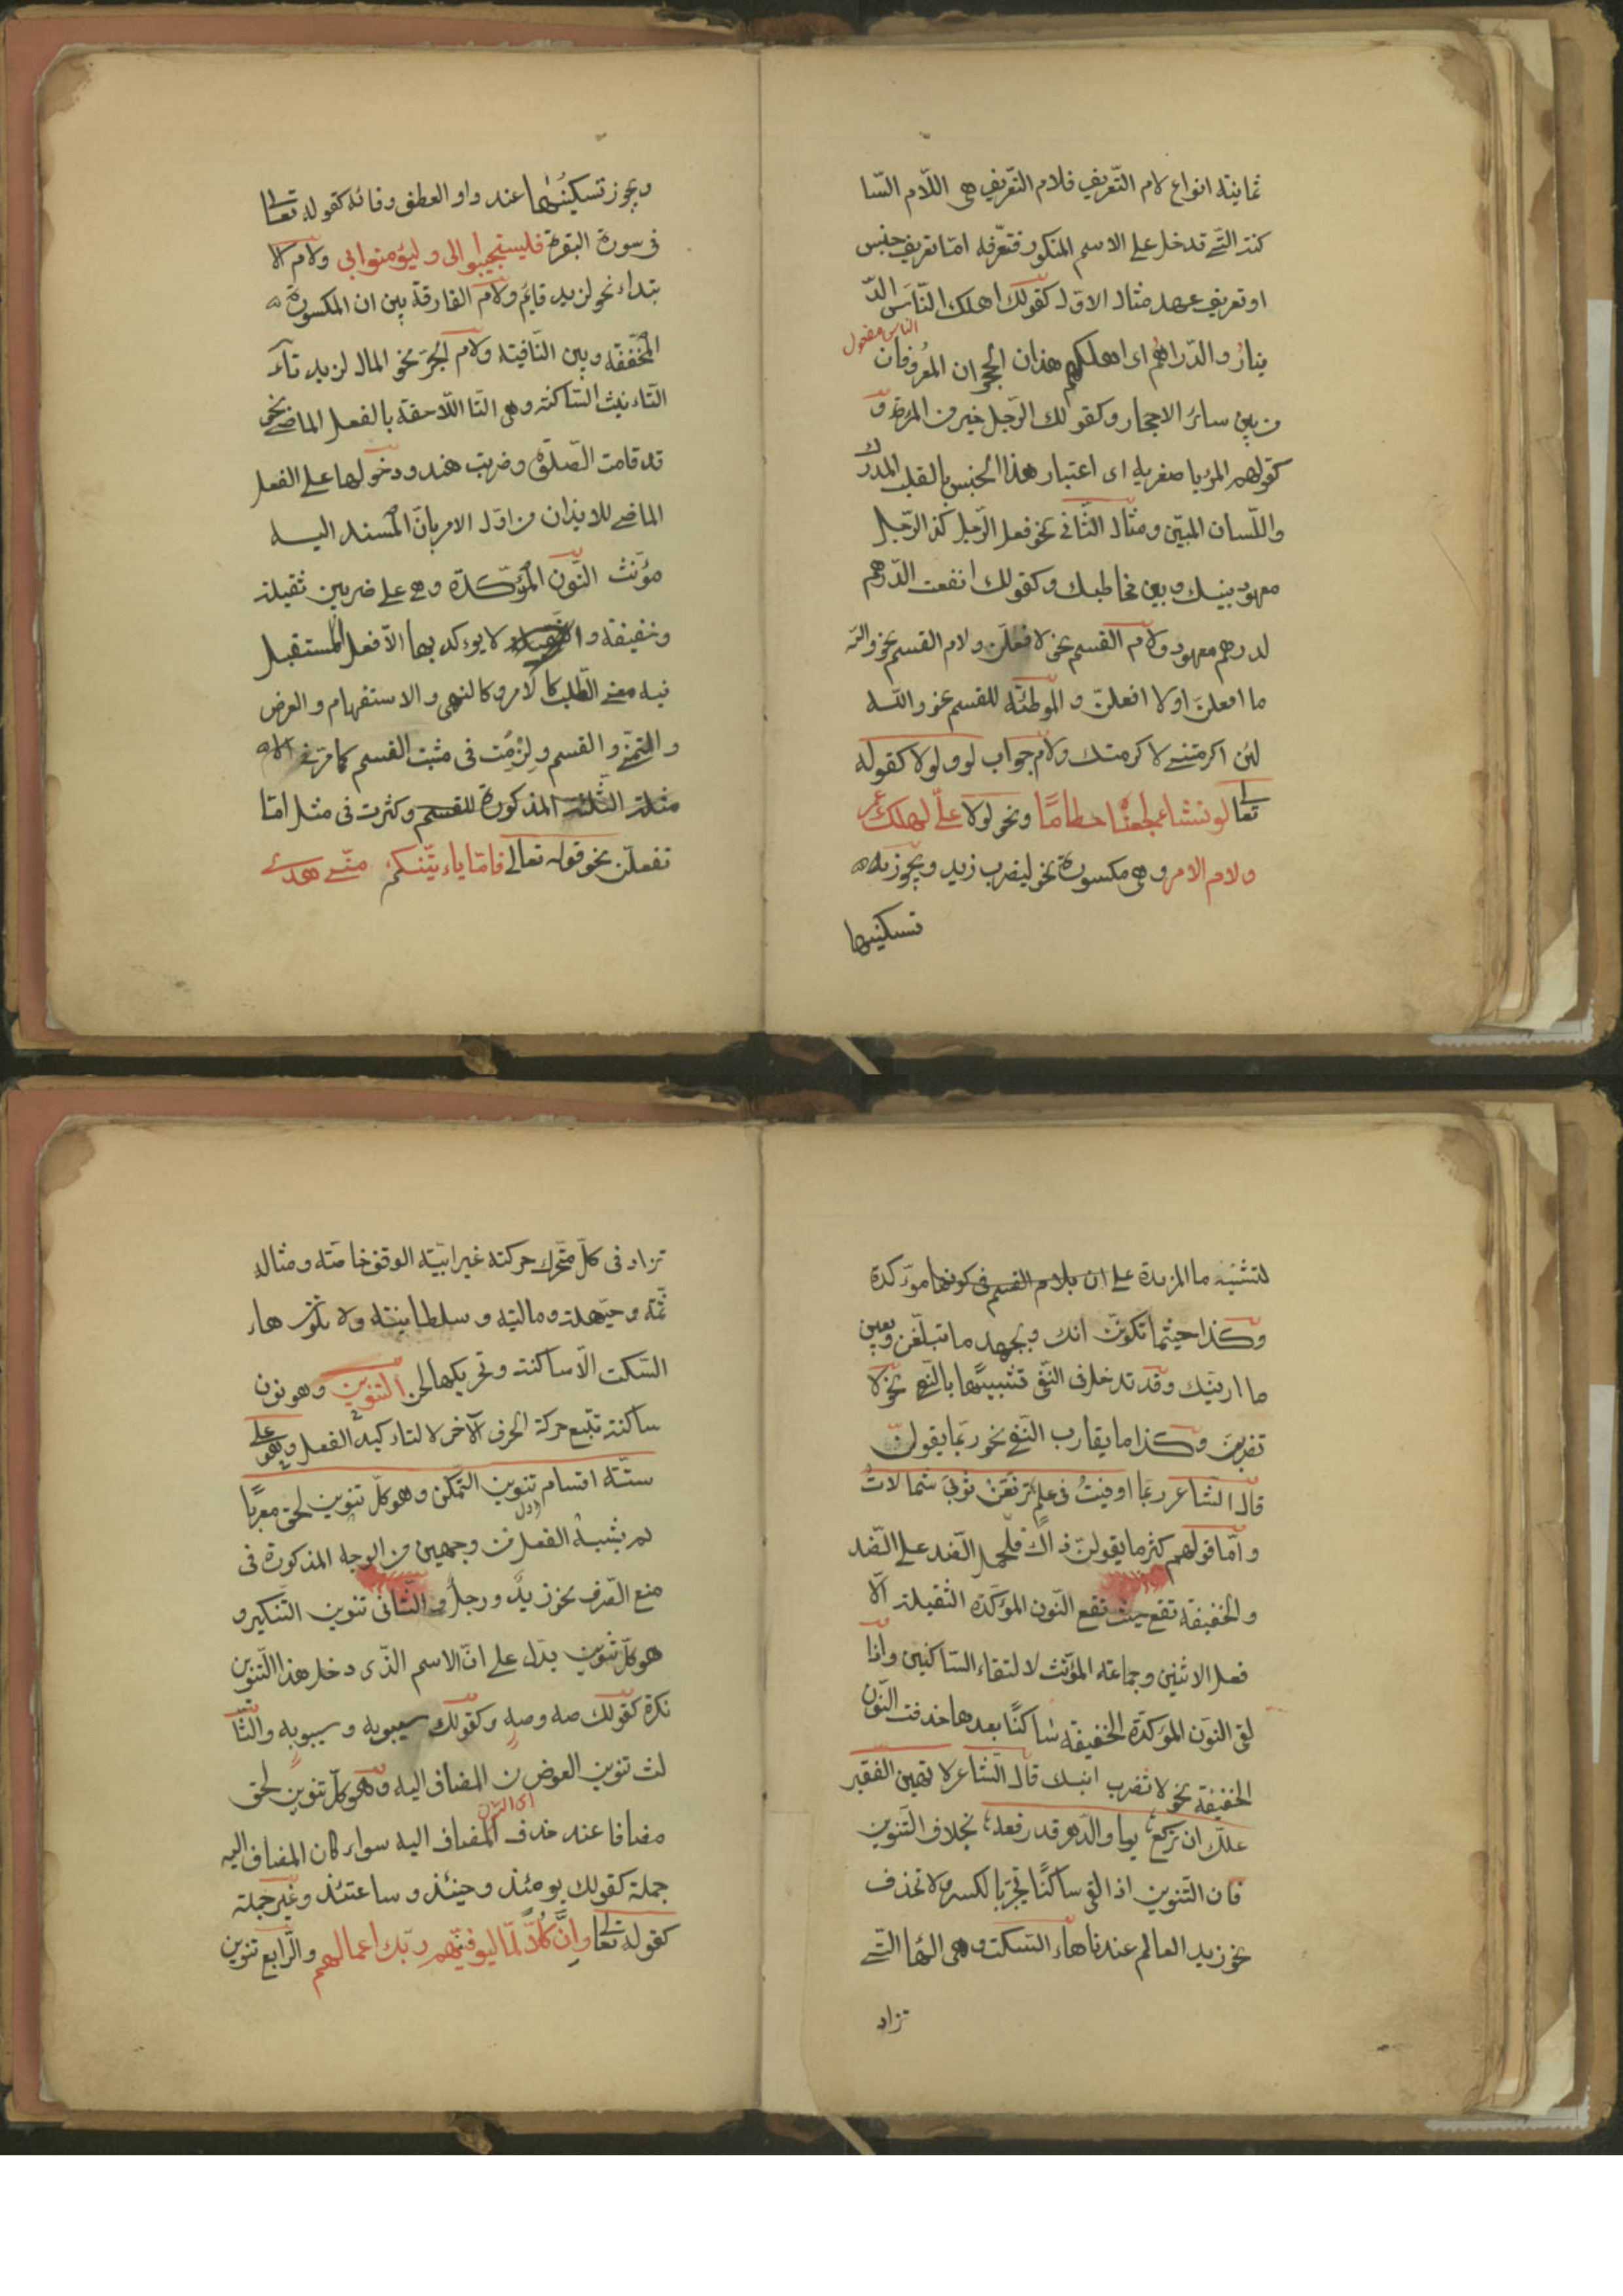 ثمانية انواع لام التّعريف فلام التّعريف هى اللّام السّا
كنة التى تدخل على الاسم المنكور فتعرّفه امّا تعريف جنس
او تعريف عهد مثال الاوّل كقولك اهلك النّاسَ الدّ
الناس مفعول
ينارُ والدّراهم اى اهلكهم هذان الحجران المعروفان
من بين سائر الاحجار وكقولك الرّجل خير من المرءة و
كقولهم المرء باصغريه اى اعتبار هذا الجنس بالقلب المدرك
واللّسان المبيّن ومثال الثّانى نحو فعل الرّجل كذا الرّجل
معهود بينك وبين مخاطبك وكقولك انفعت الدّرهم
لدرهم معهود ولام القسم نحو لافعلنّ ولام القسم نحو والله
ما افعلن او لا افعلنّ و الموطئة للقسم نحو والله
لئن اكرمتنى لاكرمتك ولام جواب لو ولولا كقوله
تعالى لو نشاء لجعلناه حطامًا ونحو لولا علىّ لهلك عمر
ولام الامر وهى مكسورة نحو ليضرب زيد ويجوز
تسكينها
ويجوز تسكينُها عند واو العطف وفائه كقوله تعالى
فى سورة البقرة فليستجيبوا لى وليؤمنوا بى ولام الا
بتداء نحو لزيد قائم ولام الفارقة بين ان المكسورة
المخفّفة وبين النّافية ولام الجرّ نحو المال لزيد تاء
التّاءنيث السّاكنة وهى التّا اللّاحقة بالفعل الماضى نحو
قد قامت الصّلوة وضربت هند ودخولها على الفعل
الماضى للايذان من اوّل الامر بانّ المسند اليه
مؤنّث النّون المؤكّدة وهى على ضربين ثقيلة
وخفيفة و لا يؤكد بها الّا فعل المستقبل
فيه معنى الطّلب كالامر وكالنهى والاستفهام والعرض
والتمنّى والقسم ولزمت فى مثبت القسم كما مرّ فى الا
مثلة الثّلثة المذكورة للقسم وكثرت فى مثل امّا
تفعلنّ نحو قوله تعالى فامّا ياءتينّكم منّى هدى
لتشبيه ما المزيدة على ان بلام القسم فى كونها مؤكدة
وكذا حيثما تكوننّ اتك وبجهد ما تبلّغنّ وبعين
ما ارينّك وقد تدخل فى النّفى تشبيهًا بالنّهى نحو لا
تضربنّ وكذا ما يقارب النّفى نحو ربّما يقولنّ
قال الشّاعر ربّما اوفيتُ فى علم ترفعن ثوبى شمالات
وامّا قولهم كثر ما يقولنّ ذاك فلحمل الضّد على الضّد
والخفيفة تقع حيث تقع النّون المؤكّدة الثّقيلة الّا
فعل الاثنين وجماعة المؤنّث لالتقاء السّاكنين واذا
لقى النّون المؤكّدة الخفيفة ساكنًا بعدها حذفت النّون
الخفيفة نحو لا تضرب ابنك قال الشّاعر لا تهين الفقير
علّك ان تركع يوما والدّهر قد رفعه بخلاف التّنوين
فان التّنوين اذا لقى ساكنًا تحرّك بالكسر ولا تحذف
نحو زيد العالم عندنا هاء السّكت وهى الهّا الّتى
تزاد
تزاد فى كلّ متحّرك حركته غير اعرابيّة الوقف خاصّة ومثاله
ثمّه وحيّهله وماليه وسلطانيته ولا تكون هاء
السّكت الّا ساكنة وتحريكها لحن التنوين وهو نون
ساكنة تتّبع حركة الحرف الآخر لا لتاءكيد الفعل وهو على
ستّة اقسام تنوين التّمكن وهو كلّ تنوين لحق معربًا
لم يشبه الفعل من وجهين من الوجه المذكورة فى
منع الصّرف نحو زيدٌ ورجلٌ والثّانى تنوين التّنكير و
هو كلّ تنوين يدّل على انّ الاسم الّذى دخل هذا التّنوين
نكرة كقولك صه وصهٍ وكقولك سيبويه وسيبويهٍ والثّا
لث تنوين العوض من المضاف اليه وهو كلّ تنوين لحق
مضافا عند حذف المضاف اليه سواء كان المضاف اليه
جملة كقولك يومئذ وحينئذ وساعتئذ وغير جملة
كقوله تعالى وانّ كلًّا لمّا ليوفّينّهم ربّك اعمالهم والرّابع تنوين